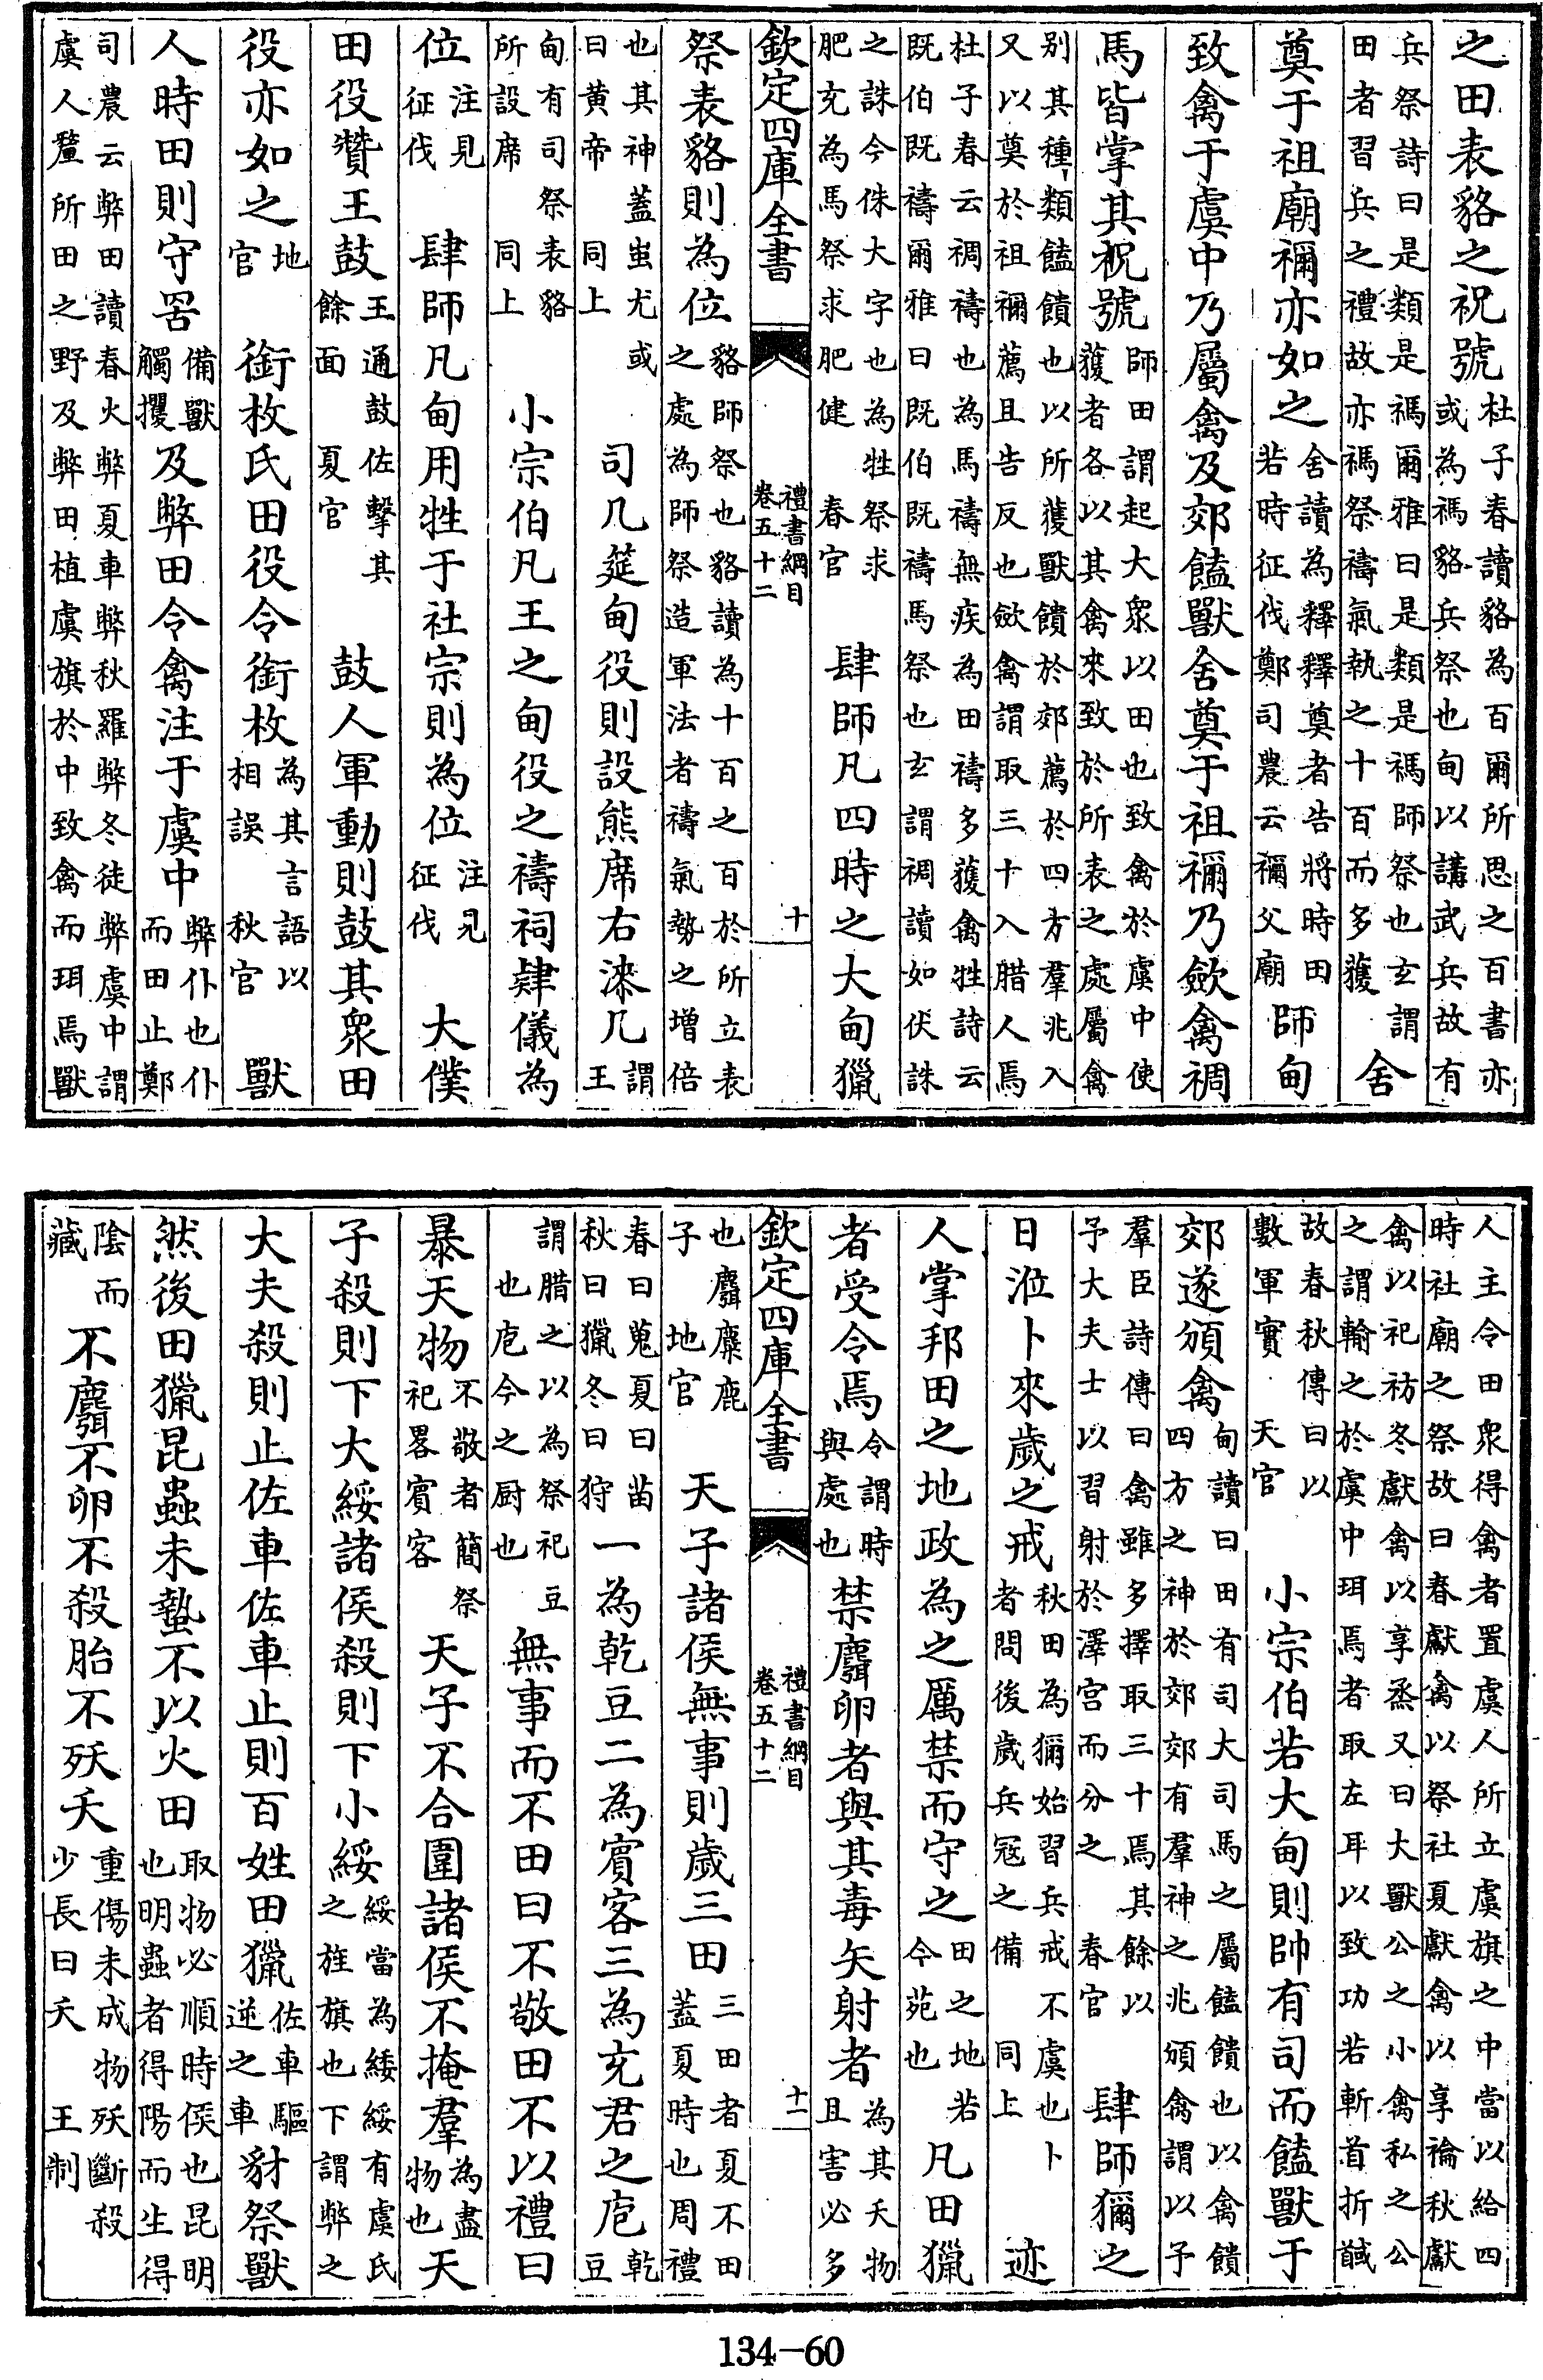 之田表貉之祝號杜子春讀貉為百爾所思之百書亦或為禡貉兵祭也甸以講武兵故有
兵祭詩曰是類是禡爾雅曰是類是禡師祭也玄謂田者習兵之禮故亦禡祭禱氣執之十百而多獲舍
奠于祖廟禰亦如之舍讀為釋釋奠者告將時田若時征伐鄭司農云禰父廟師甸
致禽于虞中乃屬禽及郊饁獸舍奠于祖禰乃斂禽禂
馬皆掌其祝號師田謂起大衆以田也致禽於虞中使獲者各以其禽來致於所表之處屬禽
别其種類饁饋也以所獲獸饋於郊薦於四方羣兆入又以奠於祖禰薦且告反也斂禽謂取三十入腊人焉
杜子春云禂禱也為馬禱無疾為田禱多獲禽牲詩云既伯既禱爾雅曰既伯既禱馬祭也玄謂禂讀如伏誅
之誅今侏大字也為牲祭求肥充為馬祭求肥健春官肆師凡四時之大甸獵
欽定四庫全書 禮書綱目卷五十二 十
祭表貉則為位貉師祭也貉讀為十百之百於所立表之處為師祭造軍法者禱氣勢之增倍
也其神蓋蚩尤或曰黄帝同上司几筵甸役則設熊席右漆几謂王
甸有司祭表貉所設席同上小宗伯凡王之甸役之禱祠肄儀為
位注見征伐肆師凡甸用牲于社宗則為位注見征伐大僕
田役贊王鼓王通鼓佐擊其餘面夏官鼓人軍動則鼓其衆田
役亦如之地官銜枚氏田役令銜枚為其言語以相誤秋官獸
人時田則守罟備獸觸攫及弊田令禽注于虞中弊仆也仆而田止鄭
司農云弊田讀春火弊夏車弊秋羅弊冬徒弊虞中謂虞人釐所田之野及弊田植虞旗於中致禽而珥焉獸
人主令田衆得禽者置虞人所立虞旗之中當以給四時社廟之祭故曰春獻禽以祭社夏獻禽以享禴秋獻
禽以祀祊冬獻禽以享烝又曰大獸公之小禽私之公之謂輸之於虞中珥焉者取左耳以致功若斬首折馘
故春秋傳曰以數軍實天官小宗伯若大甸則帥有司而饁獸于
郊遂頒禽甸讀曰田有司大司馬之屬饁饋也以禽饋四方之神於郊郊有羣神之兆頒禽謂以予
羣臣詩傳曰禽雖多擇取三十焉其餘以予大夫士以習射於澤宫而分之春官肆師獮之
日涖卜來歲之戒秋田為獮始習兵戒不虞也卜者問後歲兵冦之備同上迹
人掌邦田之地政為之厲禁而守之田之地若今苑也凡田獵
者受令焉令謂時與處也禁麛卵者與其毒矢射者為其夭物且害必多
欽定四庫全書 禮書綱目卷五十二 十一
也麛麋鹿子地官天子諸侯無事則歲三田三田者夏不田蓋夏時也周禮
春曰蒐夏曰苗秋曰獵冬曰狩一為乾豆二為賓客三為充君之庖乾豆
謂腊之以為祭祀豆也庖今之厨也無事而不田曰不敬田不以禮曰
暴天物不敬者簡祭祀畧賓客天子不合圍諸侯不掩羣為盡物也天
子殺則下大綏諸侯殺則下小綏綏當為緌緌有虞氏之旌旗也下謂弊之
大夫殺則止佐車佐車止則百姓田獵佐車驅逆之車豺祭獸
然後田獵昆蟲未蟄不以火田取物必順時侯也昆明也明蟲者得陽而生得
陰而藏不麛不卵不殺胎不殀夭重傷未成物殀斷殺少長曰夭王制
134-60